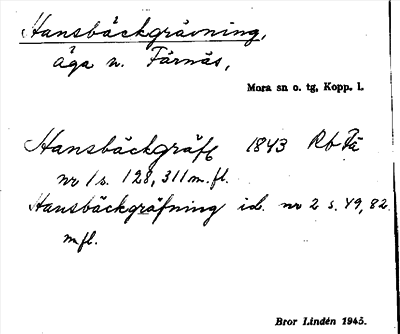 Hansbäckgrävning,
äga n. Färnäs,
Mora sn o. tg, Kopp. l.
Hansbäckgräft 1843 Rb Fä
nr 1 s. 128, 311 m.fl.
Hansbäckgräfning id. nr 2 s. 49, 82
m.fl.
Bror Lindén 1945.